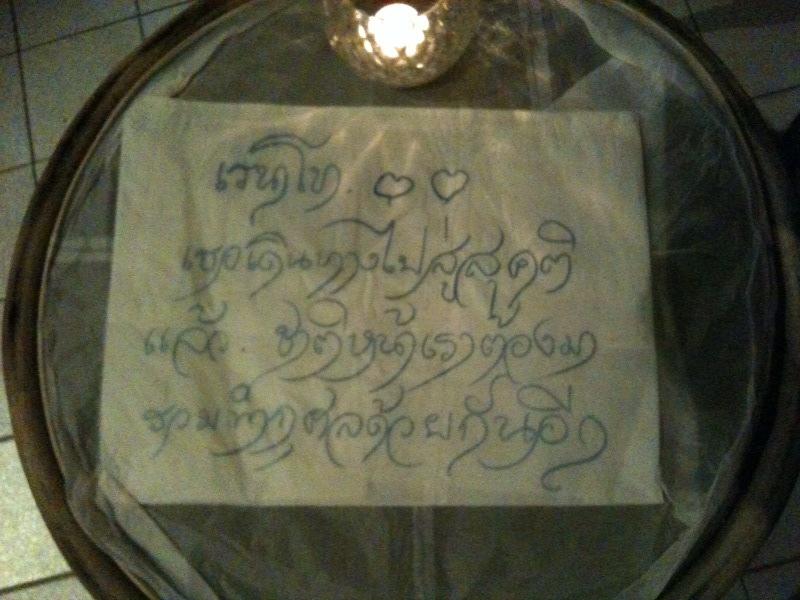 เวนโท. ♡ ♡
เธอเดินทางไปสู่สุคติ
แล้ว. ชาตินหน้าเราต้องมา
ร่วมทำกุศลด้วยกันอีก